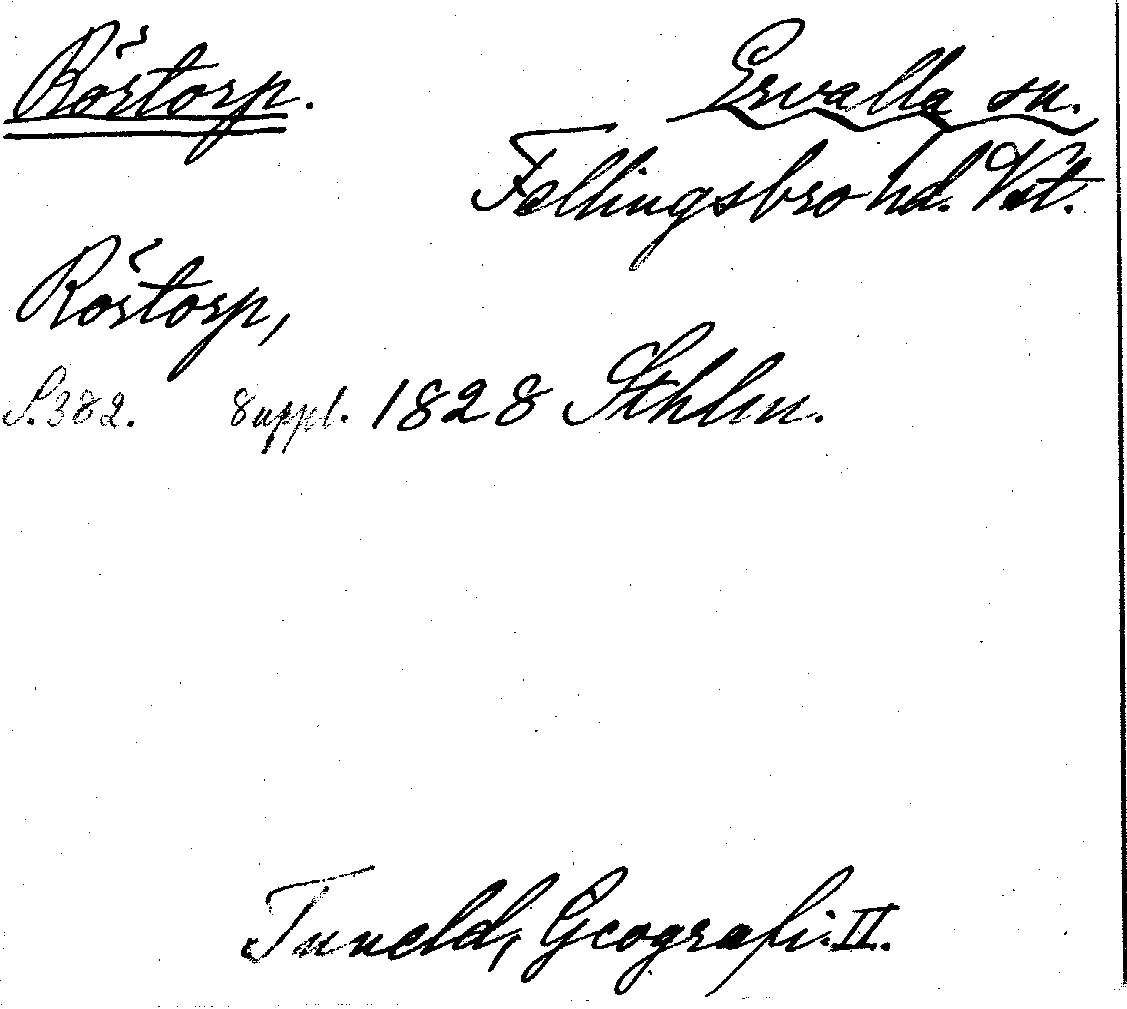 Röstorp. Ervalla sn.
Fellingsbro hd. Vstl.
Röstorp,
S. 382. Suppl. 1828 Sthlm.
Tuneld, Geografi. II.